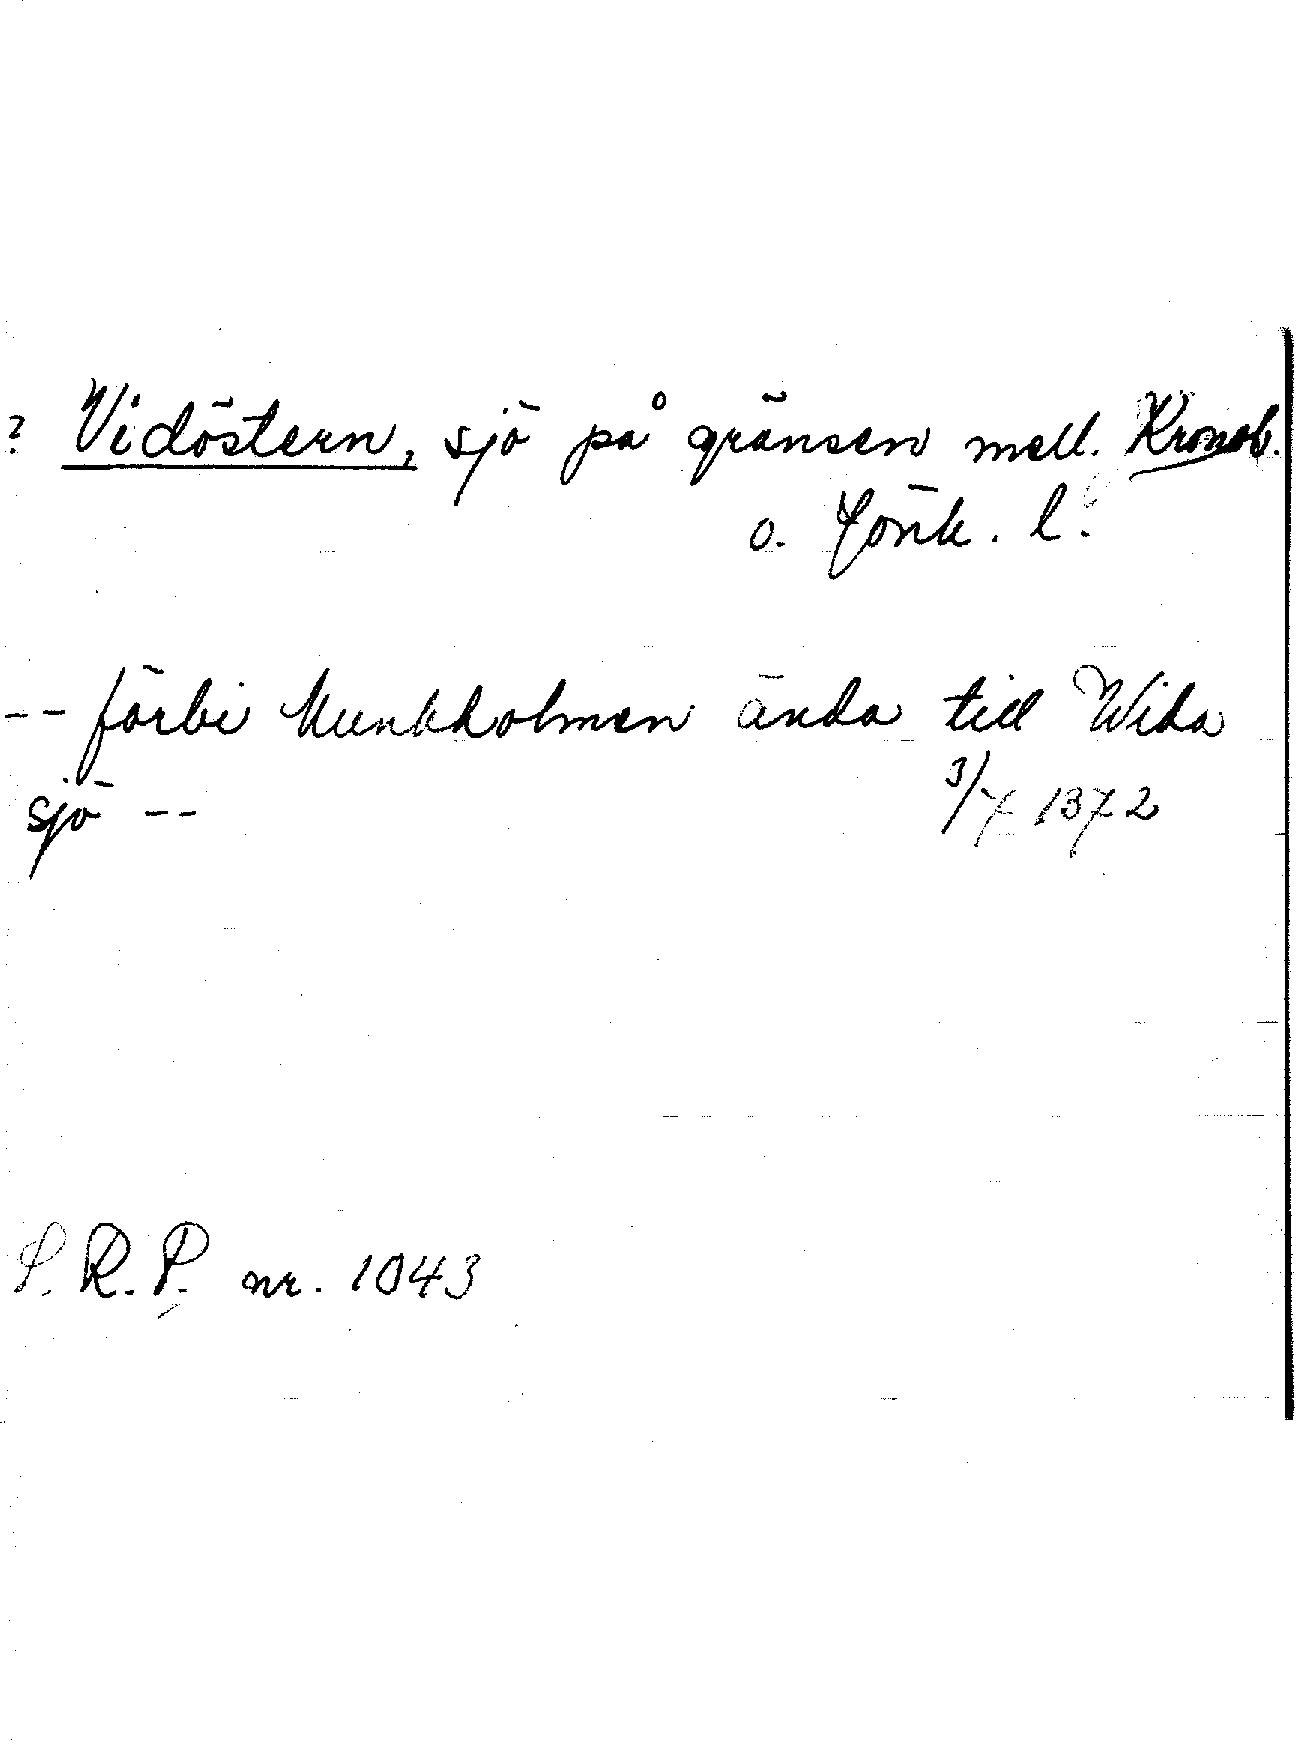 ? Vidöstern, sjö på gränsen mell. Kronob.
o. Jönk. l.
-- förbi Munkholmen ända till Wida
sjö -- 3/7 1372
S.R.P. nr. 1043